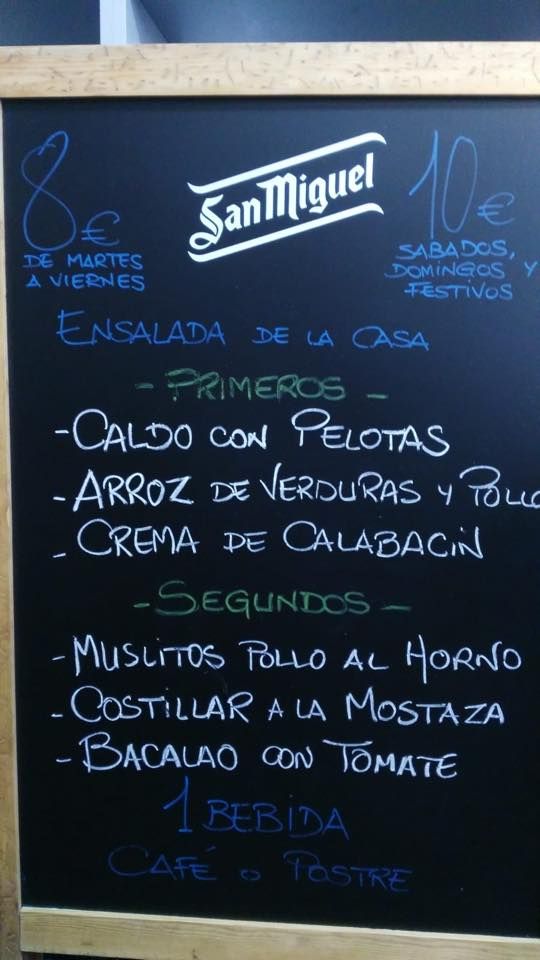 8€
DE MARTES
A VIERNES
San Miguel
10€
SABADOS,
DOMINGOS Y
FESTIVOS
ENSALADA DE LA CASA
- PRIMEROS -
- CALDO CON PELOTAS
- ARROZ DE VERDURAS Y POLLO
- CREMA DE CALABACIN
- SEGUNDOS -
- MUSLITOS POLLO AL HORNO
- COSTILLAR A LA MOSTAZA
- BACALAO CON TOMATE
1 BEBIDA
CAFÉ O POSTRE